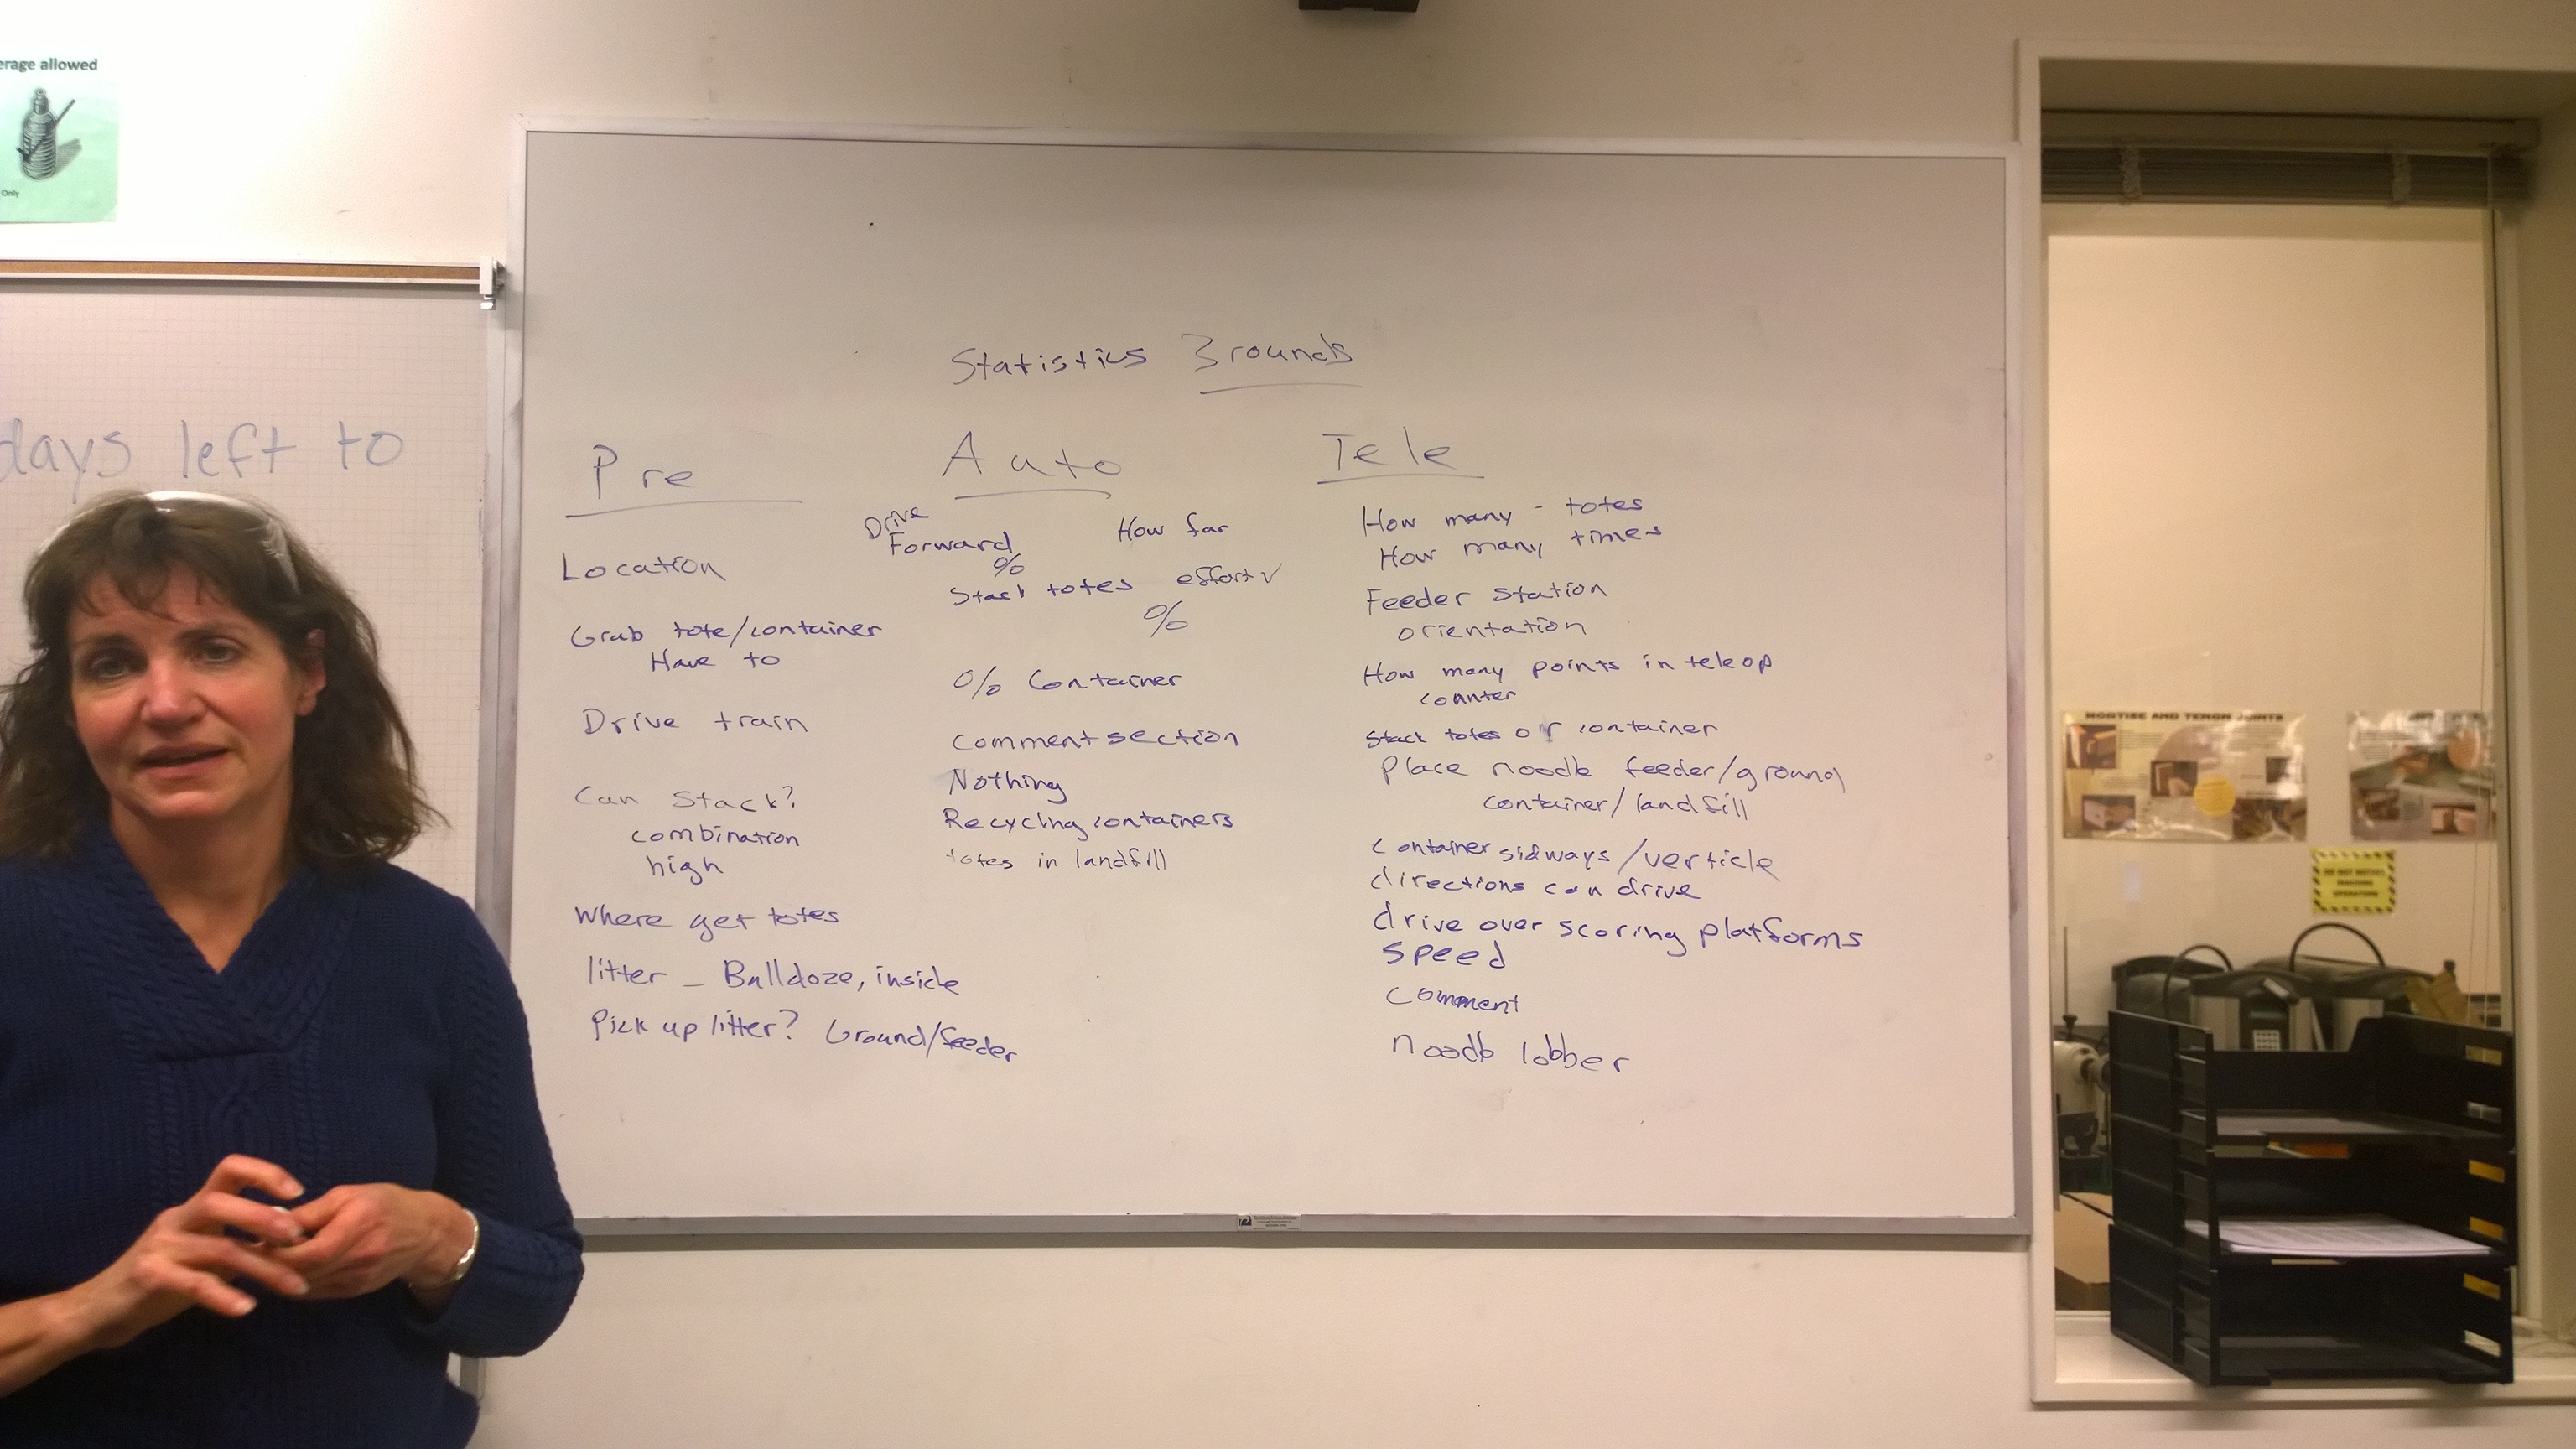 erage allowed
Only
days left to
Statistics 3 rounds
Pre
Location
Grab tote/container
Have to
Drive train
Can Stack?
combination
high
Where get totes
litter - Bulldoze, inside
Pick up litter? Ground/feeder
Auto
Drive
Forward
How far
%
Stack totes effort ✓
%
% Container
Comment section
Nothing
Recycling containers
totes in landfill
Tele
How many - totes
How many times
Feeder Station
orientation
How many points in teleop
counter
Stack totes or container
Place noodle feeder/ground
container/landfill
container sidways/verticle
directions can drive
drive over scoring platforms
speed
comment
noodle lobber
MORTISE AND TENON JOINTS